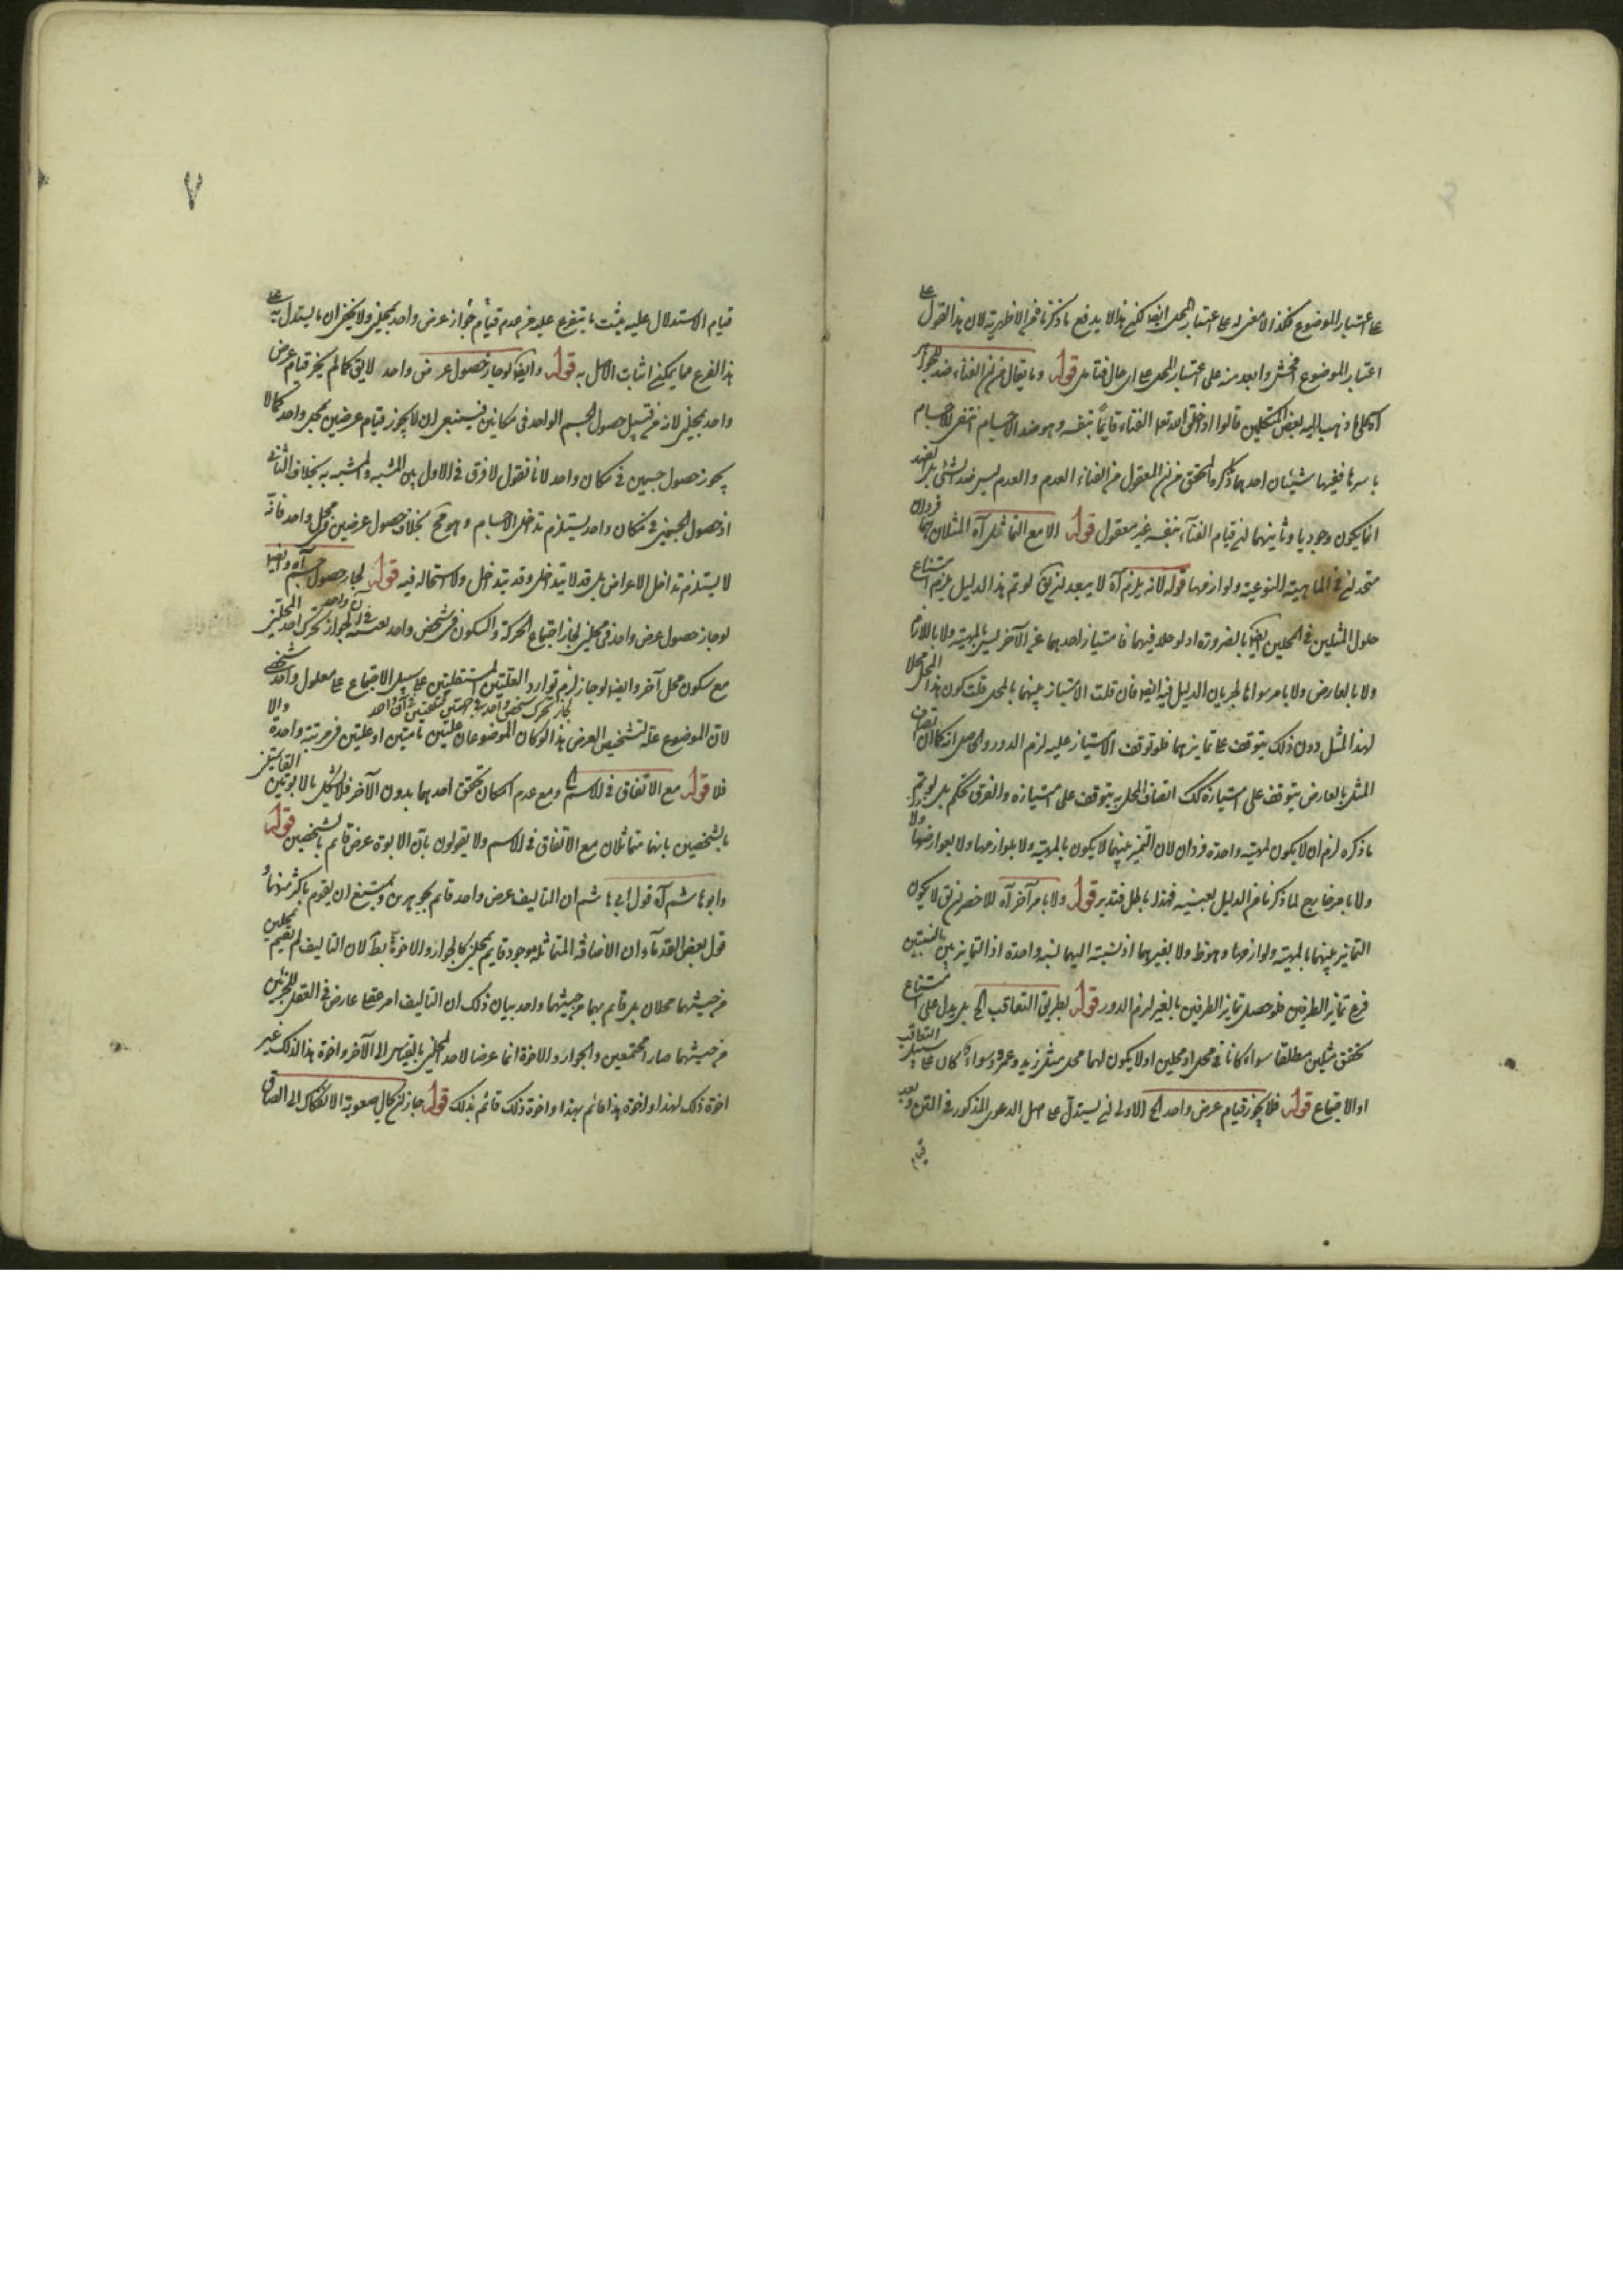 على اعتبار الموضوع فكذا لا معنى له على اعتبار المحل ايضا لكن هذا لا يدفع ما ذكرنا من الاظهرية لان هذا القول على
اعتبار الموضوع افحش وابعد منه على اعتبار المحل على اى حال فتأمل قوله وما يقال من ان الفناء ضد للجواهر
آه كما ذهب اليه بعض المتكلمين قالوا اذا خلق الله تعالى الفناء قايما بنفسه وهو ضد الاجسام انتفى الاجسام
باسرها ففيها شيئان احدهما ما ذكره المحقق من ان المعقول من الفناء العدم والعدم ليس ضد الشئ بل الضد
انما يكون وجوديا وثانيهما ان قيام الفناء بنفسه غير معقول قوله الا مع التماثل آه المثلان هما فردان
متحدان في الماهية النوعية ولوازمها قوله لانه يلزم آه لا يبعد ان يق لو تم هذا الدليل يلزم امتناع
حلول المثلين في المحلين ايضا بالضرورة اذ لو حلا فيهما فامتياز احدهما عن الآخر ليس بالمهية ولا باللازم
ولا بالعارض ولا بامر سواها لجريان الدليل فيه ايضا فان قلت الامتياز بينهما بالمحل قلت كون هذا المحل محلا
لهذا المثل دون ذلك يتوقف على تمايزهما فلو توقف الامتياز عليه لزم الدور والحاصل انه كما ان اتصاف
المثل بالعارض يتوقف على امتيازه كك اتصاف المحل به يتوقف على امتيازه والفرق تحكم بل لو تم
ما ذكره لزم ان لا يكون لمهية واحدة فردان لان التميز بينهما لا يكون بالمهية ولا بلوازمها ولا بعوارضها ولا
ولا بامر خارج لما ذكرنا من الدليل بعينه فهذا باطل فتدبر قوله ولا بامر آخر آه الاخصر ان يق لا يكون
التمايز بينهما بالمهية ولوازمها وهو ظ ولا بغيرهما اذ نسبته اليهما نسبة واحدة اذ التمايز بين النسبتين
فرع تمايز الطرفين فلو حصل تمايز الطرفين بالغير لزم الدور قوله بطريق التعاقب الخ بل يدل على امتناع
تحقق مثلين مطلقا سواء كانا في محل او محلين او لا يكون لهما محل مثل زيد وعمرو وسواء كان على سبيل التعاقب
او الاجتماع قوله فلا يجوز قيام عرض واحد الخ الاولى ان يستدل على اصل الدعوى المذكور في المتن وبعد
قيام
٧
قيام الاستدلال عليه يثبت ما يتفرع عليه من عدم قيام جواز عرض واحد بمحلين ولا يخفى ان ما يستدل به على
هذا الفرع مما يمكن اثبات الاصل به قوله وايضا لو جاز حصول عرض واحد لا يق كما لم يجز قيام عرض
واحد بمحلين لانه من قبيل حصول الجسم الواحد في مكانين فينبغى ان لا يجوز قيام عرضين بمحل واحد كما لا
يجوز حصول جسمين في مكان واحد لانا نقول لا فرق في الاول بين المشبه والمشبه به بخلاف الثانى
اذ حصول الجسمين في مكان واحد يستلزم تداخل الاجسام وهو مح بخلاف حصول عرضين في محل واحد فانه
لا يستلزم تداخل الاعراض بل قد لا يتداخل وقد يتداخل ولا استحالة فيه قوله لجاز حصول جسم آه وايضا
لو جاز حصول عرض واحد في محلين لجاز اجتماع الحركة والسكون في شخص واحد بعينه في آن واحد لجواز تحرك احد المحلين
مع سكون محل آخر وايضا لو جاز لزم توارد العلتين المستقلتين على سبيل الاجتماع على معلول واحد شخصى
لجاز تحرك شخص واحد في جهتين مختلفتين في آن واحد
لان الموضوع علة لتشخص العرض هذا لو كان الموضوعان علتين تامتين او علتين في مرتبة واحدة والا
فلا قوله مع الاتفاق في الاسم ومع عدم امكان تحقق احدهما بدون الآخر فلا يشكل بالابوتين القائمتين
بالشخصين بانهما متماثلان مع الاتفاق في الاسم ولا يقولون بان الابوة عرض قايم بالشخصين قوله
وابو هاشم آه قول ابى هاشم ان التأليف عرض واحد قايم بجوهرين ويمتنع ان يقوم باكثر منهما و
قول بعض القدماء ان الاضافة المتماثلة موجود قايم بمحلين كالجوار والاخوة بط لان التأليف لم يقم بمحلين
من حيث هما محلان بل قايم بهما من حيث هما واحد بيان ذلك ان التأليف امر عقلى عارض في العقل للجزئين
من حيث هما صارا مجتمعين والجوار والاخوة انما عرضا لاحد المحلين بالقياس الى الآخر واخوة هذا لذلك غير
اخوة ذلك لهذا واخوة هذا قائم بهذا واخوة ذلك قائم بذلك قوله جاز ان كال صعوبة الانفكاك الى الصاق